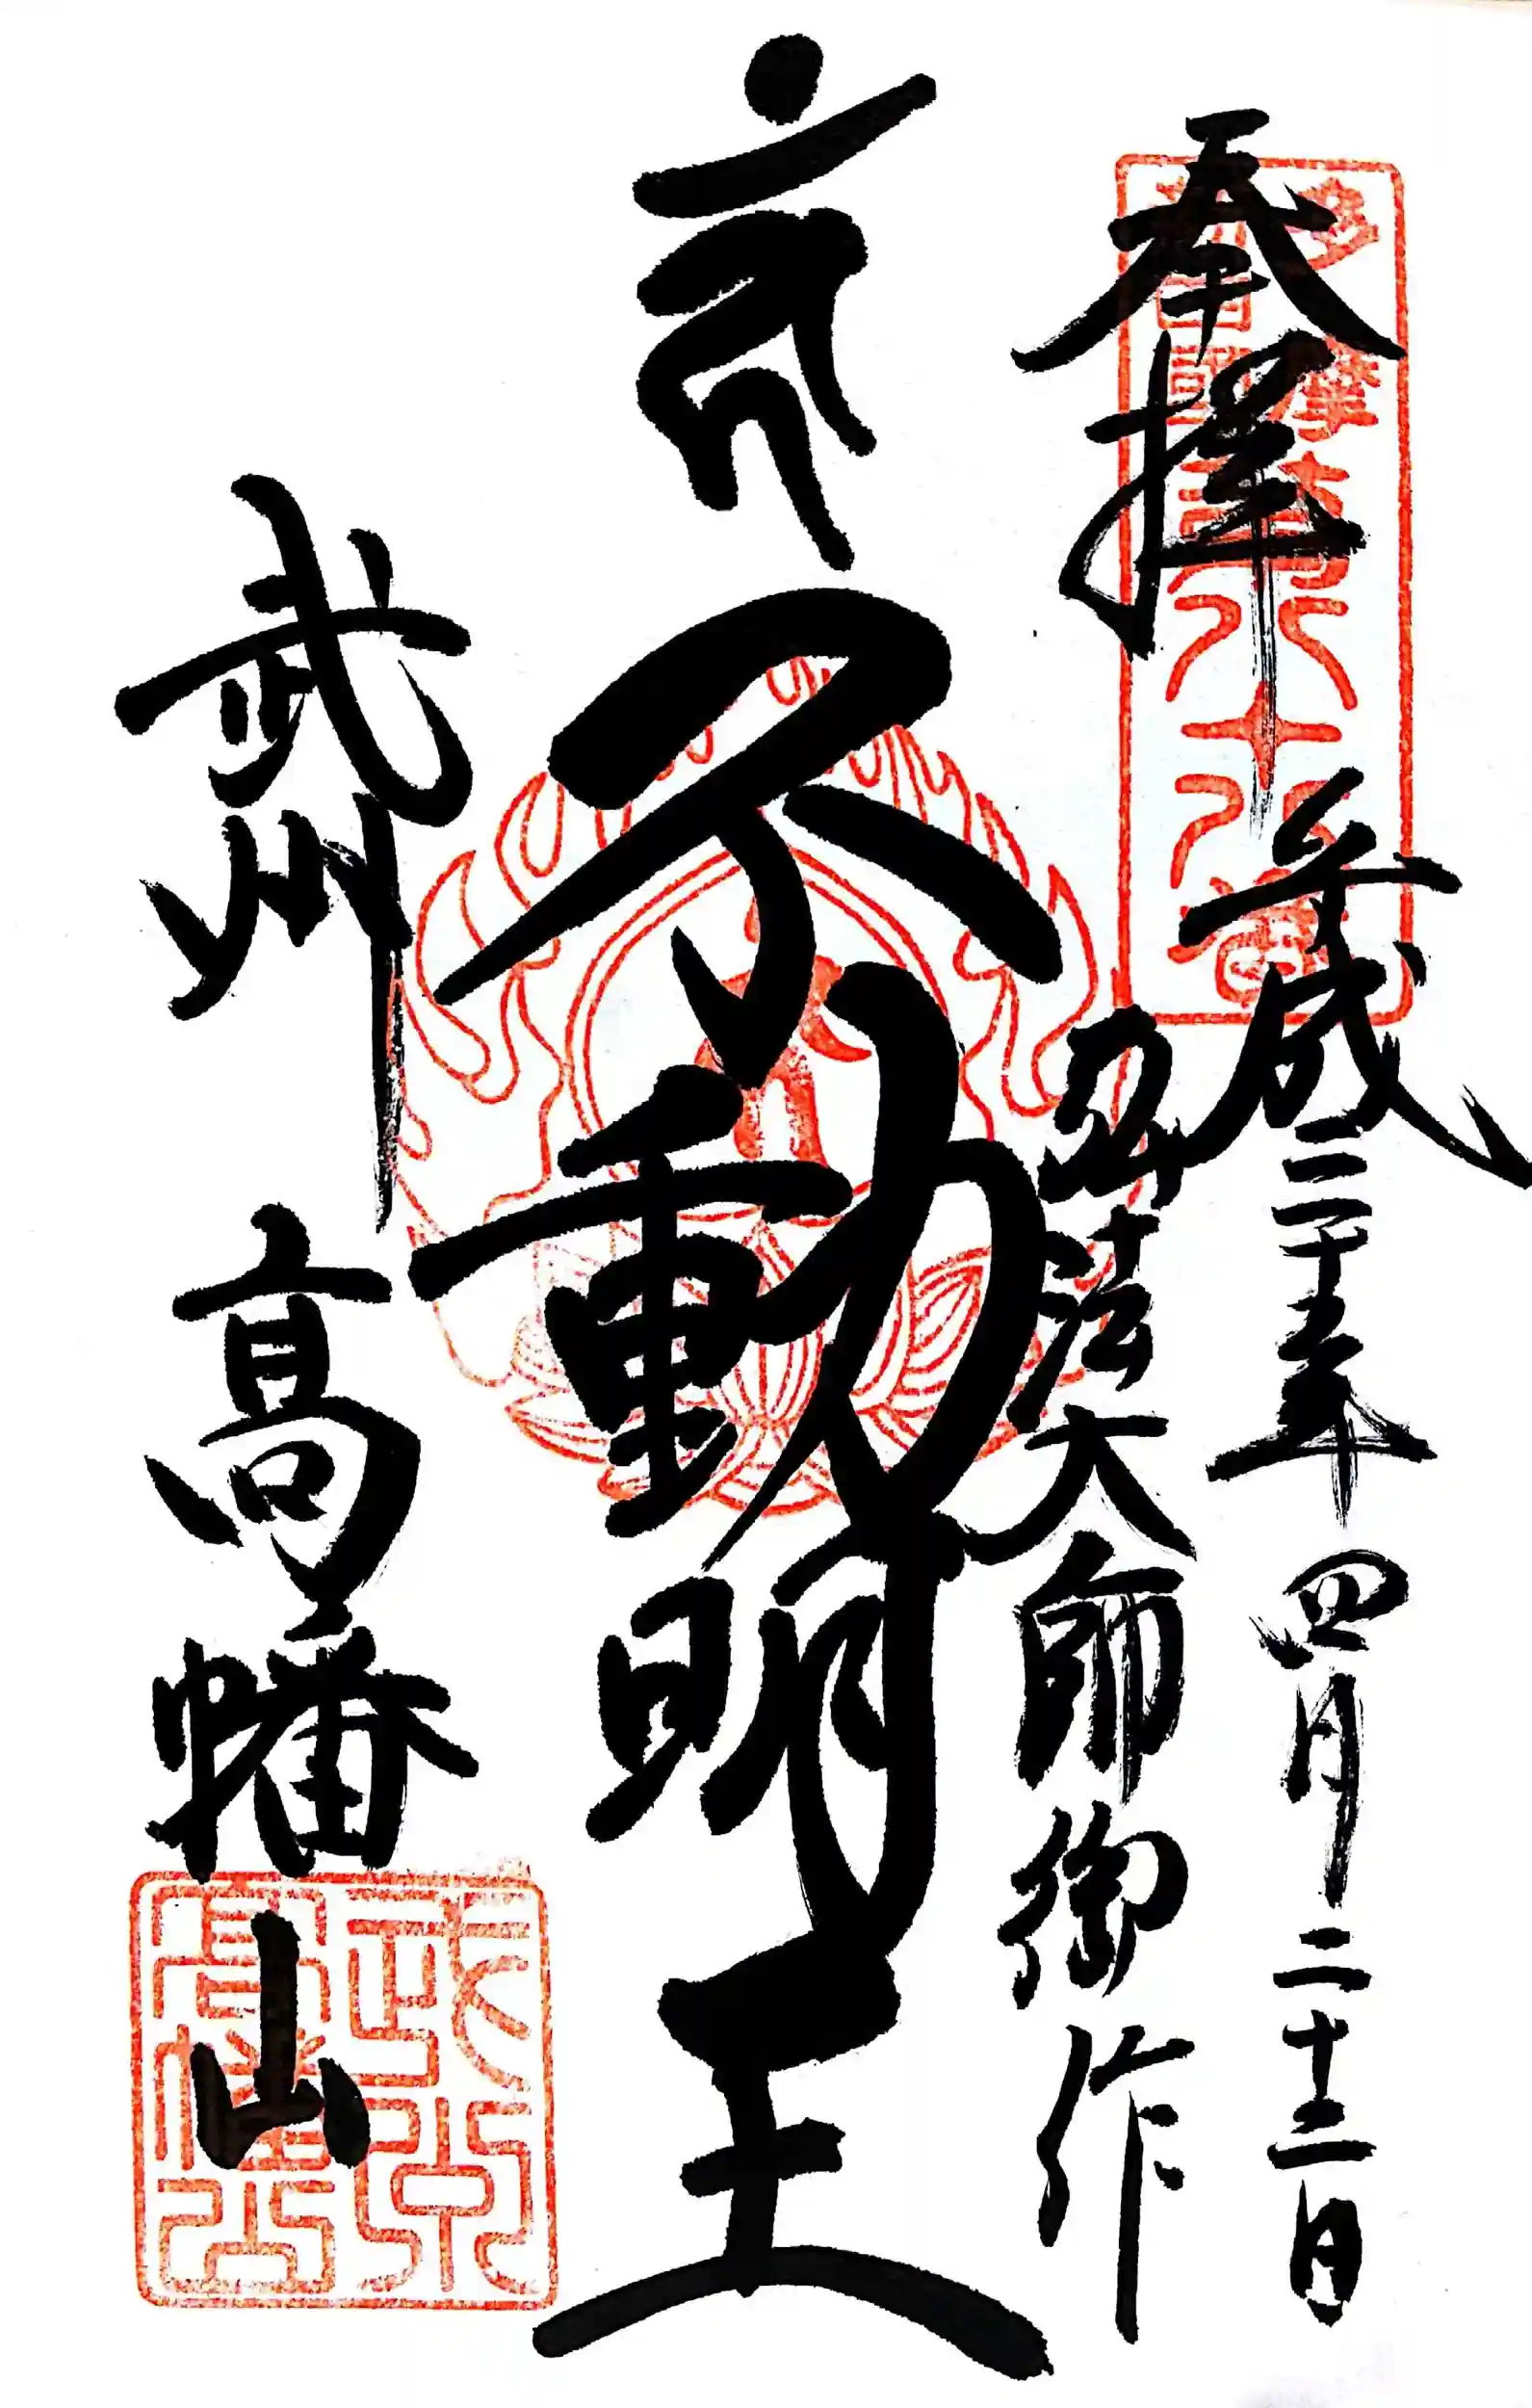 奉拝
平成二十五年四月二十二日
弘法大師御作
不動明王
武州 高幡山